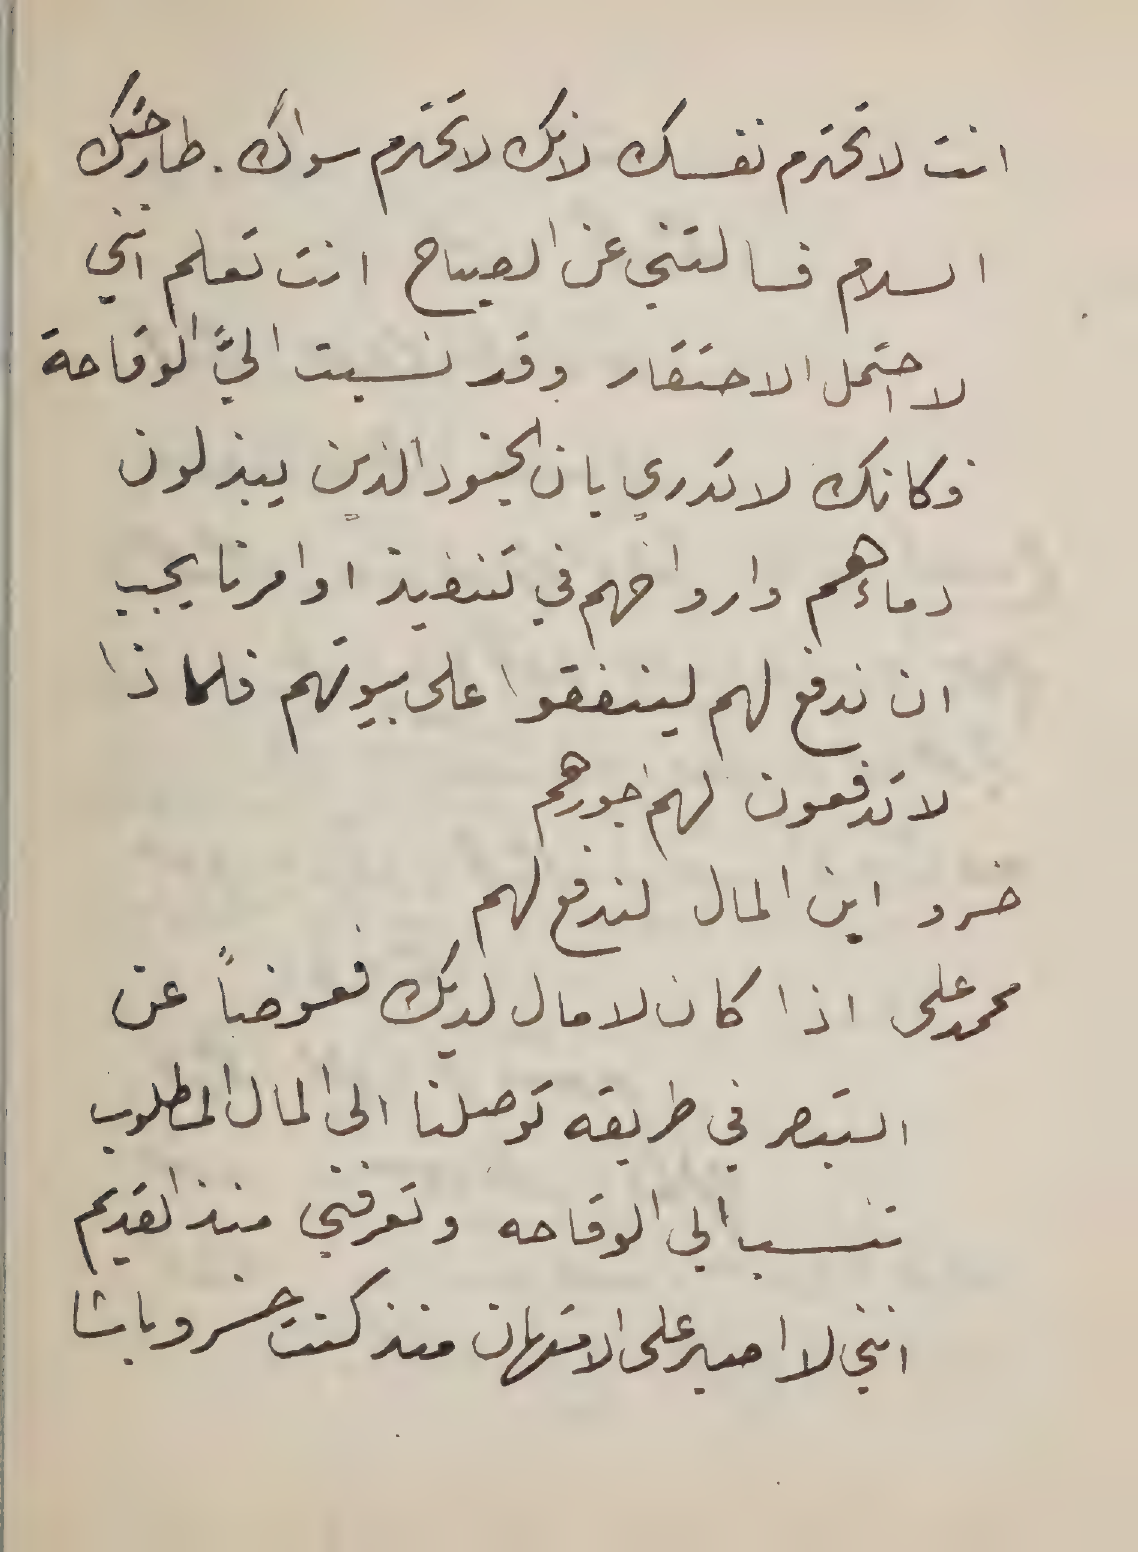 انت لا تحترم نفسك لانك لا تحترم سواك . طارحتك
السلام فسالتني عن الصياح انت تعلم انني
لا احتمل الاحتقار وقد نسبت اليَّ الوقاحة
فكانك لا تدري بان الجنود الذين يبذلون
دماءهم وارواحهم في تنفيذ اوامرنا يجب
ان ندفع لهم لينفقوا على بيوتهم فلماذا
لا تدفعون لهم اجورهم
خسرو اين المال لندفع لهم
محمد علي اذا كان لا مال لديك فعوضاً عن
التبصر في طريقه توصلنا الى المال المطلوب
تنسب الي الوقاحه وتعرفني منذ القديم
انني لا اصبر على الامتهان منذ كنت خسرو باشا